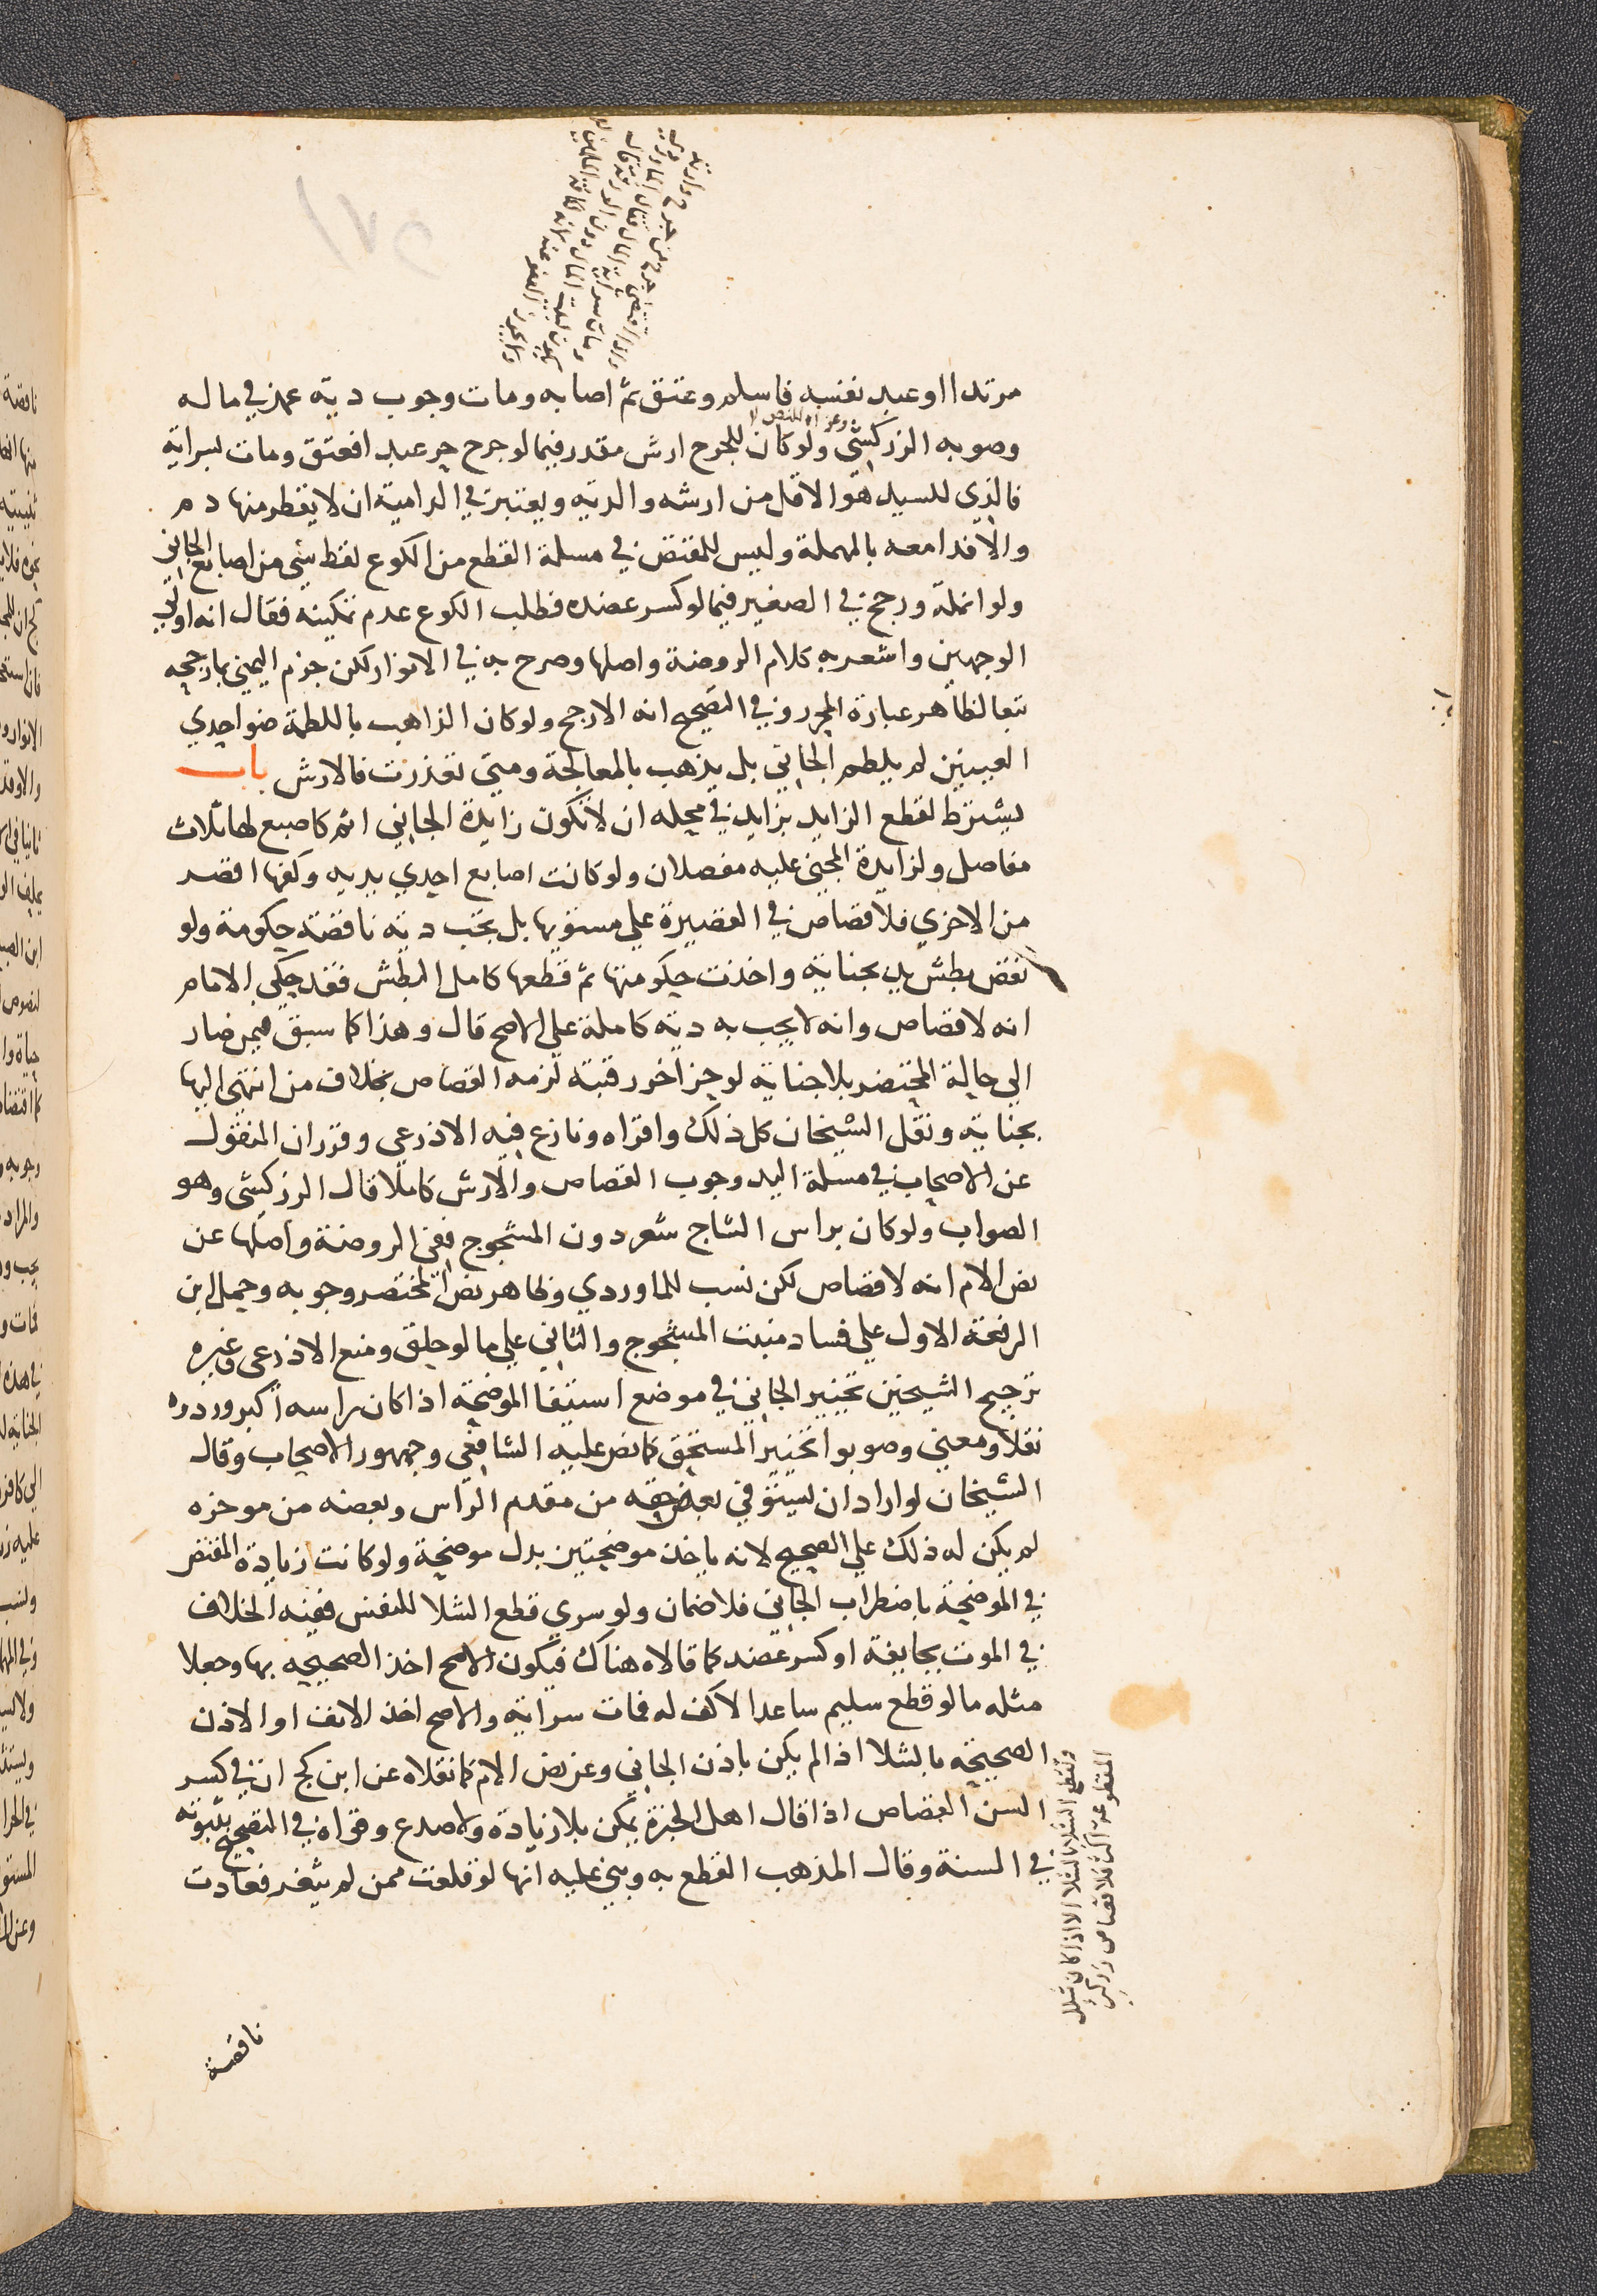 مرتدا او عبد نفسه فاسلم وعتق ثم اصابه ومات وجوب دية عمد في ماله
وصوبه الزركشي وعزاه للنص ولو كان للجرح ارش مقدر فيما لو جرح حر عبدا فعتق ومات لسراية
فالذي للسيد هو الاقل من ارشه والدية ويعتبر في الدامية ان لا يقطر منها دم
والا فدامعه بالمهملة وليس للمقتص في مسلة القطع من الكوع لقط شي من اصابع الجاني
ولو انملة ورجح في الصغير فيما لو كسر عضده فطلب الكوع عدم تمكينه فقال انه اولى
الوجهين واشعر به كلام الروضة واصلها وصرح به في الانوار لكن جزم اليمني بما رجحه
تبعا لظاهر عبارة المحرر وفي التصحيح انه الارجح ولو كان الذاهب باللطمة ضو احدي
العينين لم يلطم الجاني بل يذهب بالمعالجة ومتى تعذرت فالارش باب
يشترط لقطع الزايد بزايد في محله ان لا تكون زايدة الجاني اتم كاصبع لها ثلاث
مفاصل ولزايدة المجني عليه مفصلان ولو كانت اصابع احدي يديه وكفها اقصر
من الاخري فلا قصاص في القصيرة علي مستويها بل تجب دية ناقصة حكومة ولو
نقص بطش يد بجناية واخذت حكومتها ثم قطعها كامل البطش فقد حكي الامام
انه لا قصاص وانه لا يجب به دية كاملة علي الاصح قال وهذا كما سبق فيمن صار
الي حالة المحتضر بلا جناية لو حز اخر رقبته لزمه القصاص بخلاف من انتهى اليها
بجناية ونقل الشيخان كل ذلك واقراه ونازع فيه الاذرعي وقرر ان المنقول
عن الاصحاب في مسلة اليد وجوب القصاص والارش كاملا قال الزركشي وهو
الصواب ولو كان براس الشاج شعر دون المشجوج ففي الروضة واصلها عن
نص الام انه لا قصاص لكن نسب للماوردي وظاهر نص المختصر وجوبه وحمل ابن
الرفعة الاول علي فساد منبت المشجوج والثاني علي ما لو حلق ومنع الاذرعي وغيره
ترجيح الشيخين تخيير الجاني في موضع استيفا الموضحة اذا كان راسه اكبر وردده
نقلا ومعنى وصوبوا تخيير المستحق كما نص عليه الشافعي وجمهور الاصحاب وقال
الشيخان لو اراد ان يستوفي بعض حقه من مقدم الراس وبعضه من موخره
لم يكن له ذلك علي الصحيح لانه ياخذ موضحتين بدل موضحة ولو كانت زيادة المقتص
في الموضحة باضطراب الجاني فلا ضمان ولو سري قطع الشلا للنفس ففيه الخلاف
في الموت بجايفة او كسر عضد كما قالاه هناك فيكون الاصح اخذ الصحيحه بها وجعلا
مثله ما لو قطع سليم ساعدا لا كف له فمات سراية والاصح اخذ الانف او الاذن
الصحيحه بالشلا اذا لم يكن باذن الجاني وعن نص الام كما نقلاه عن ابن كج ان في كسر
السن القصاص اذا قال اهل الخبرة يمكن بلا زيادة ولا صدع وقواه في التصحيح بثبوته
في السنة وقال المذهب القطع به وبني عليه انها لو قلعت ممن لم يثغر فعادت
وتقطع الشلا بالشلا الا اذا كان شلل
المقطوعة اكثر فلا قصاص
ناقصة